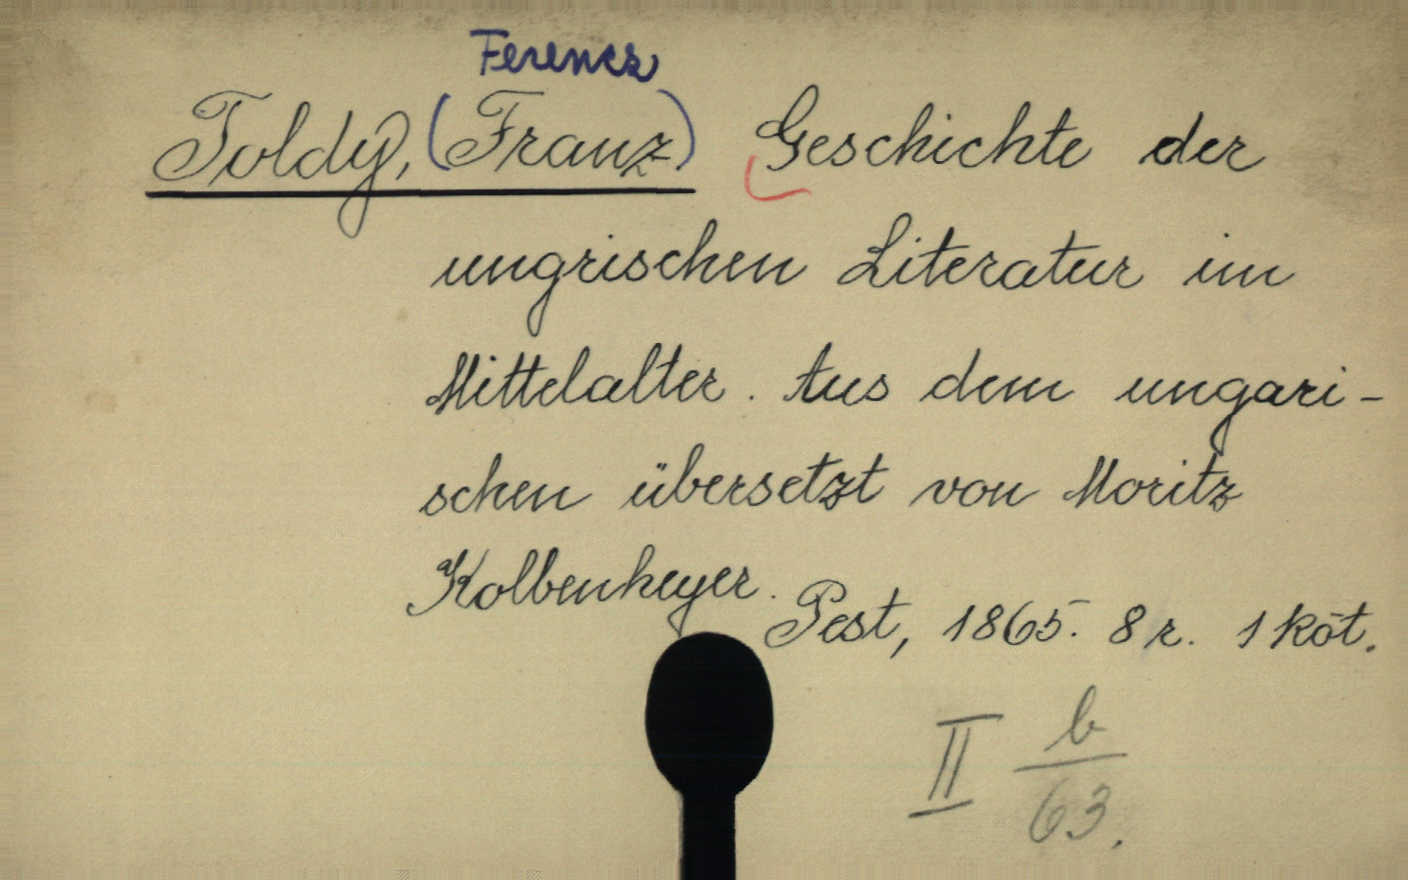 Ferencz
Toldy, (Franz) Geschichte der
ungrischen Literatur im
Mittelalter. Aus dem ungari-
schen übersetzt von Moritz
Kolbenheyer.
Pest, 1865. 8 r. 1 köt.
II b/63.